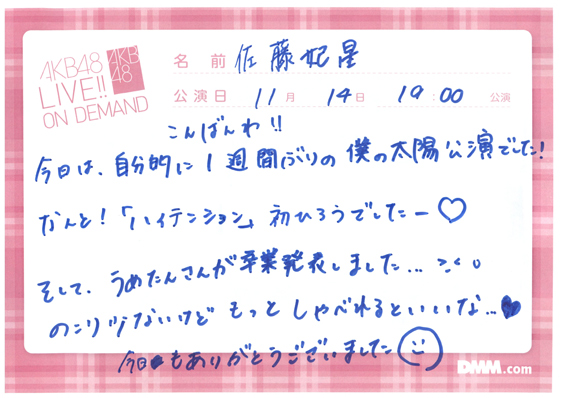 AKB48
LIVE!!
ON DEMAND
AKB
48
名前 佐藤妃星
公演日 11月 14日 19:00 公演
こんばんわ!!
今日は、自分的に1週間ぶりの僕の太陽公演でした!
なんと!「ハイテンション」初ひろうでしたー♡
そして、うめたんさんが卒業発表しました...
のこり少ないけど もっと しゃべれるといいな...♥
今日もありがとうございました
DMM.com